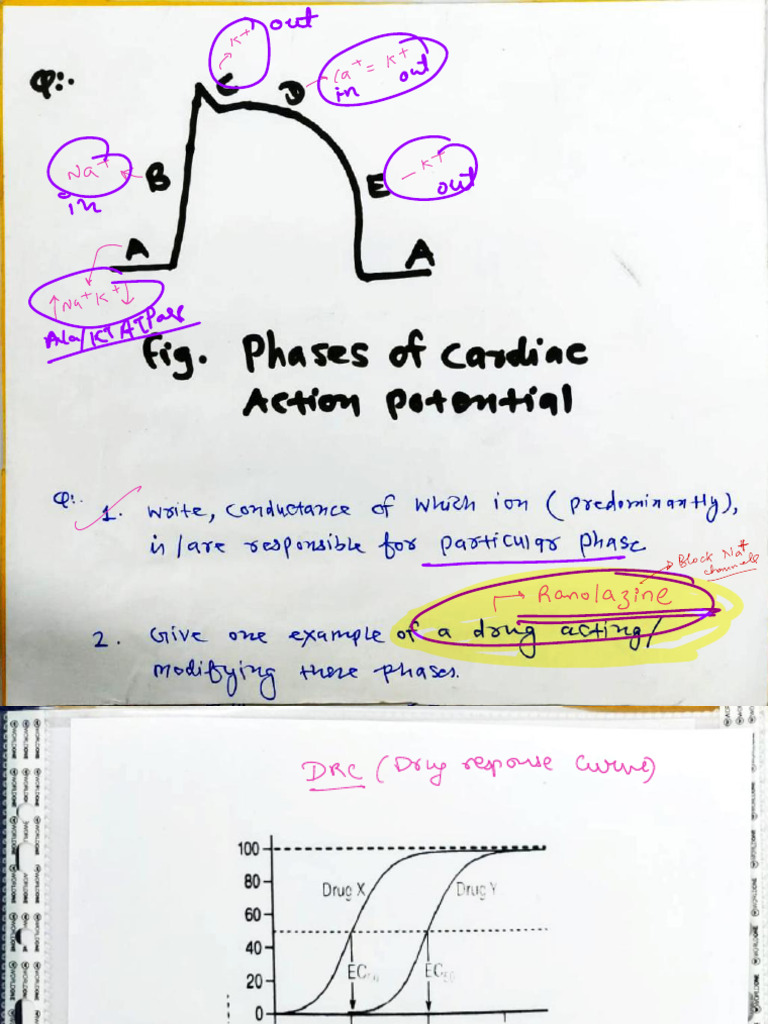 K+ out
Q:.
C
D
Ca+ = K+
in out
Na+
in
B
E
- K+
out
A
A
↑Na+ K+↓
Na/K+ ATPase
Fig. Phases of cardiac
Action Potential
Q:. 1. Write, conductance of which ion (predominantly),
is/are responsible for particular phase
→ Block Na+
channels
→ Ranolazine
2. Give one example of a drug acting/
modifying these phases.
WORLDONE
DRC (Drug response curve)
100
80
Drug X
Drug Y
60
40
EC50
EC50
20
0